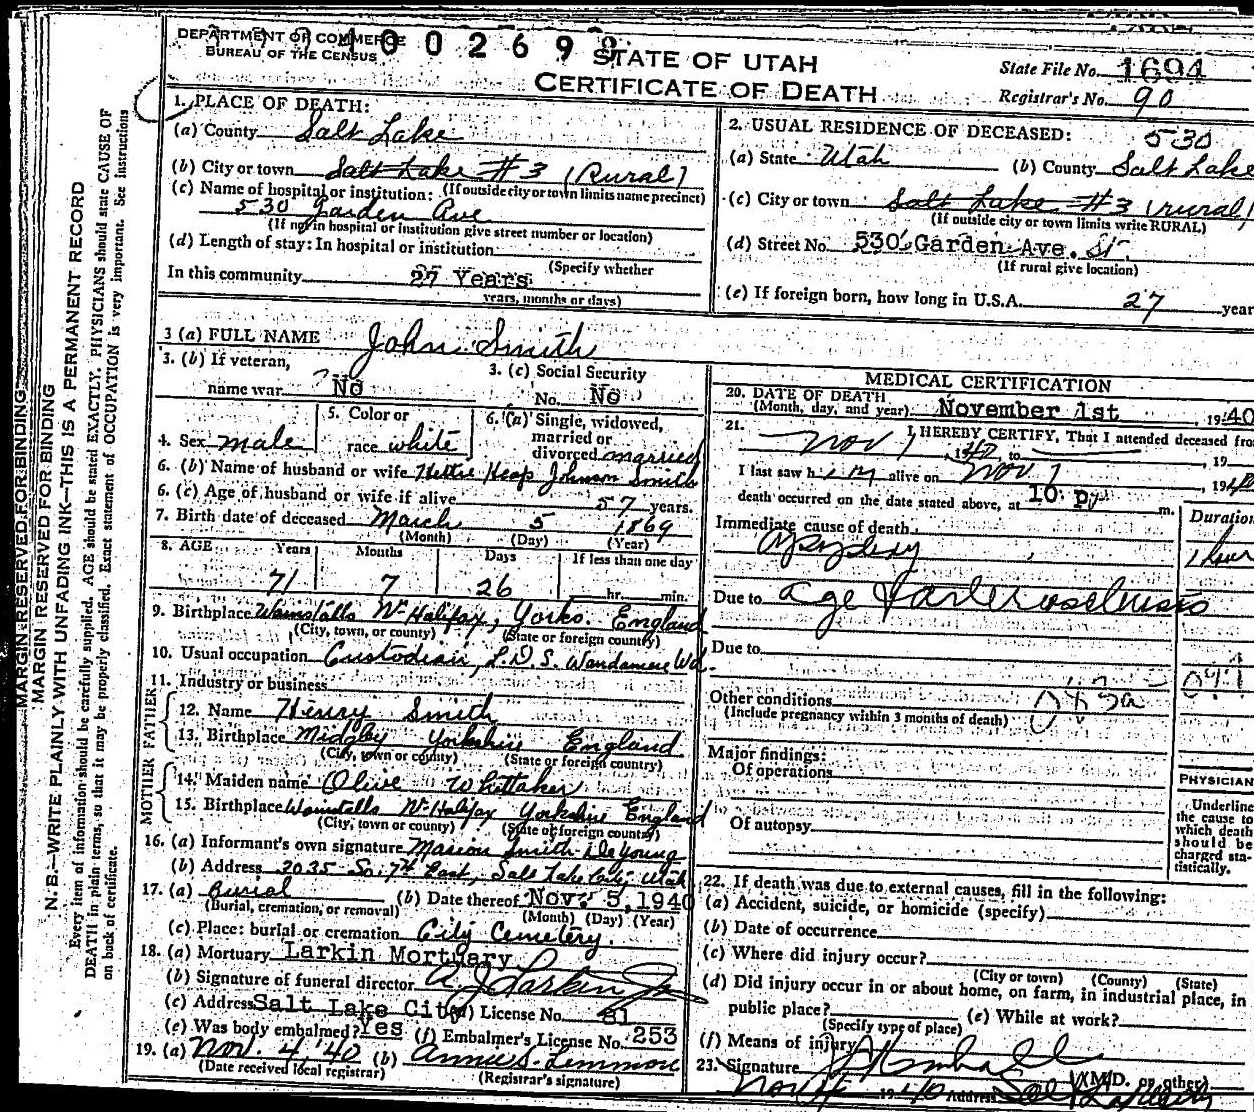 DEPARTMENT OF COMMERCE
BUREAU OF THE CENSUS
4002698
STATE OF UTAH
CERTIFICATE OF DEATH
State File No. 1694
Registrar's No. 90
MARGIN RESERVED FOR BINDING
MARGIN RESERVED FOR BINDING
N. B.—WRITE PLAINLY WITH UNFADING INK—THIS IS A PERMANENT RECORD
Every item of information should be carefully supplied. AGE should be stated EXACTLY. PHYSICIANS should state CAUSE OF
DEATH in plain terms, so that it may be properly classified. Exact statement of OCCUPATION is very important. See instructions
on back of certificate.
1. PLACE OF DEATH:
(a) County Salt Lake
(b) City or town Salt Lake #3 (Rural)
(If outside city or town limits name precinct)
(c) Name of hospital or institution:
530 Garden Ave
(If not in hospital or institution give street number or location)
(d) Length of stay: In hospital or institution
(Specify whether
In this community 27 Years
years, months or days)
2. USUAL RESIDENCE OF DECEASED: 530
(a) State Utah (b) County Salt Lake
(c) City or town Salt Lake #3 (rural)
(If outside city or town limits write RURAL)
(d) Street No. 530 Garden Ave. St.
(If rural give location)
(e) If foreign born, how long in U.S.A. 27 year
3 (a) FULL NAME John Smith
3. (b) If veteran,
name war No
3. (c) Social Security
No. No
4. Sex male
5. Color or
race white
6. (a) Single, widowed,
married or
divorced married
6. (b) Name of husband or wife Hettie Heap Johnson Smith
6. (c) Age of husband or wife if alive 57 years.
7. Birth date of deceased March 5 1869
(Month) (Day) (Year)
8. AGE Years Months Days If less than one day
71 7 26 hr. min.
9. Birthplace Wainstalls Nr Halifax, Yorks. England
(City, town, or county) (State or foreign country)
10. Usual occupation Custodian, L.D.S. Wandamere Wd.
11. Industry or business
FATHER
12. Name Henry Smith
13. Birthplace Midgley Yorkshire England
(City, town or county) (State or foreign country)
MOTHER
14. Maiden name Olive Whittaker
15. Birthplace Wainstalls Nr Halifax Yorkshire England
(City, town or county) (State or foreign country)
16. (a) Informant's own signature Marion Smith DeYoung
(b) Address 2035 So. 7th East, Salt Lake City Utah
17. (a) Burial (b) Date thereof Nov. 5, 1940
(Burial, cremation, or removal) (Month) (Day) (Year)
(c) Place: burial or cremation City Cemetery.
18. (a) Mortuary Larkin Mortuary
(b) Signature of funeral director A J Larkin Jr
(c) Address Salt Lake City (d) License No. 81
(e) Was body embalmed? Yes (f) Embalmer's License No. 253
19. (a) Nov. 4, '40 (b) Annie S. Lemmon
(Date received local registrar) (Registrar's signature)
MEDICAL CERTIFICATION
20. DATE OF DEATH
(Month, day, and year) November 1st, 1940
21. I HEREBY CERTIFY, That I attended deceased from
Nov 1, 1940 to , 19
I last saw him alive on Nov 1, 1940
death occurred on the date stated above, at 10 p m.
Duration
Immediate cause of death
Apoplexy 1 hour
Due to age & arteriosclerosis
Due to
Other conditions
(Include pregnancy within 3 months of death)
Major findings:
Of operations
Of autopsy
PHYSICIAN
Underline
the cause to
which death
should be
charged sta-
tistically.
22. If death was due to external causes, fill in the following:
(a) Accident, suicide, or homicide (specify)
(b) Date of occurrence
(c) Where did injury occur?
(City or town) (County) (State)
(d) Did injury occur in or about home, on farm, in industrial place, in
public place? (e) While at work?
(Specify type of place)
(f) Means of injury
23. Signature
(M.D. or other)
Nov 4 1940 Address Salt Lake City